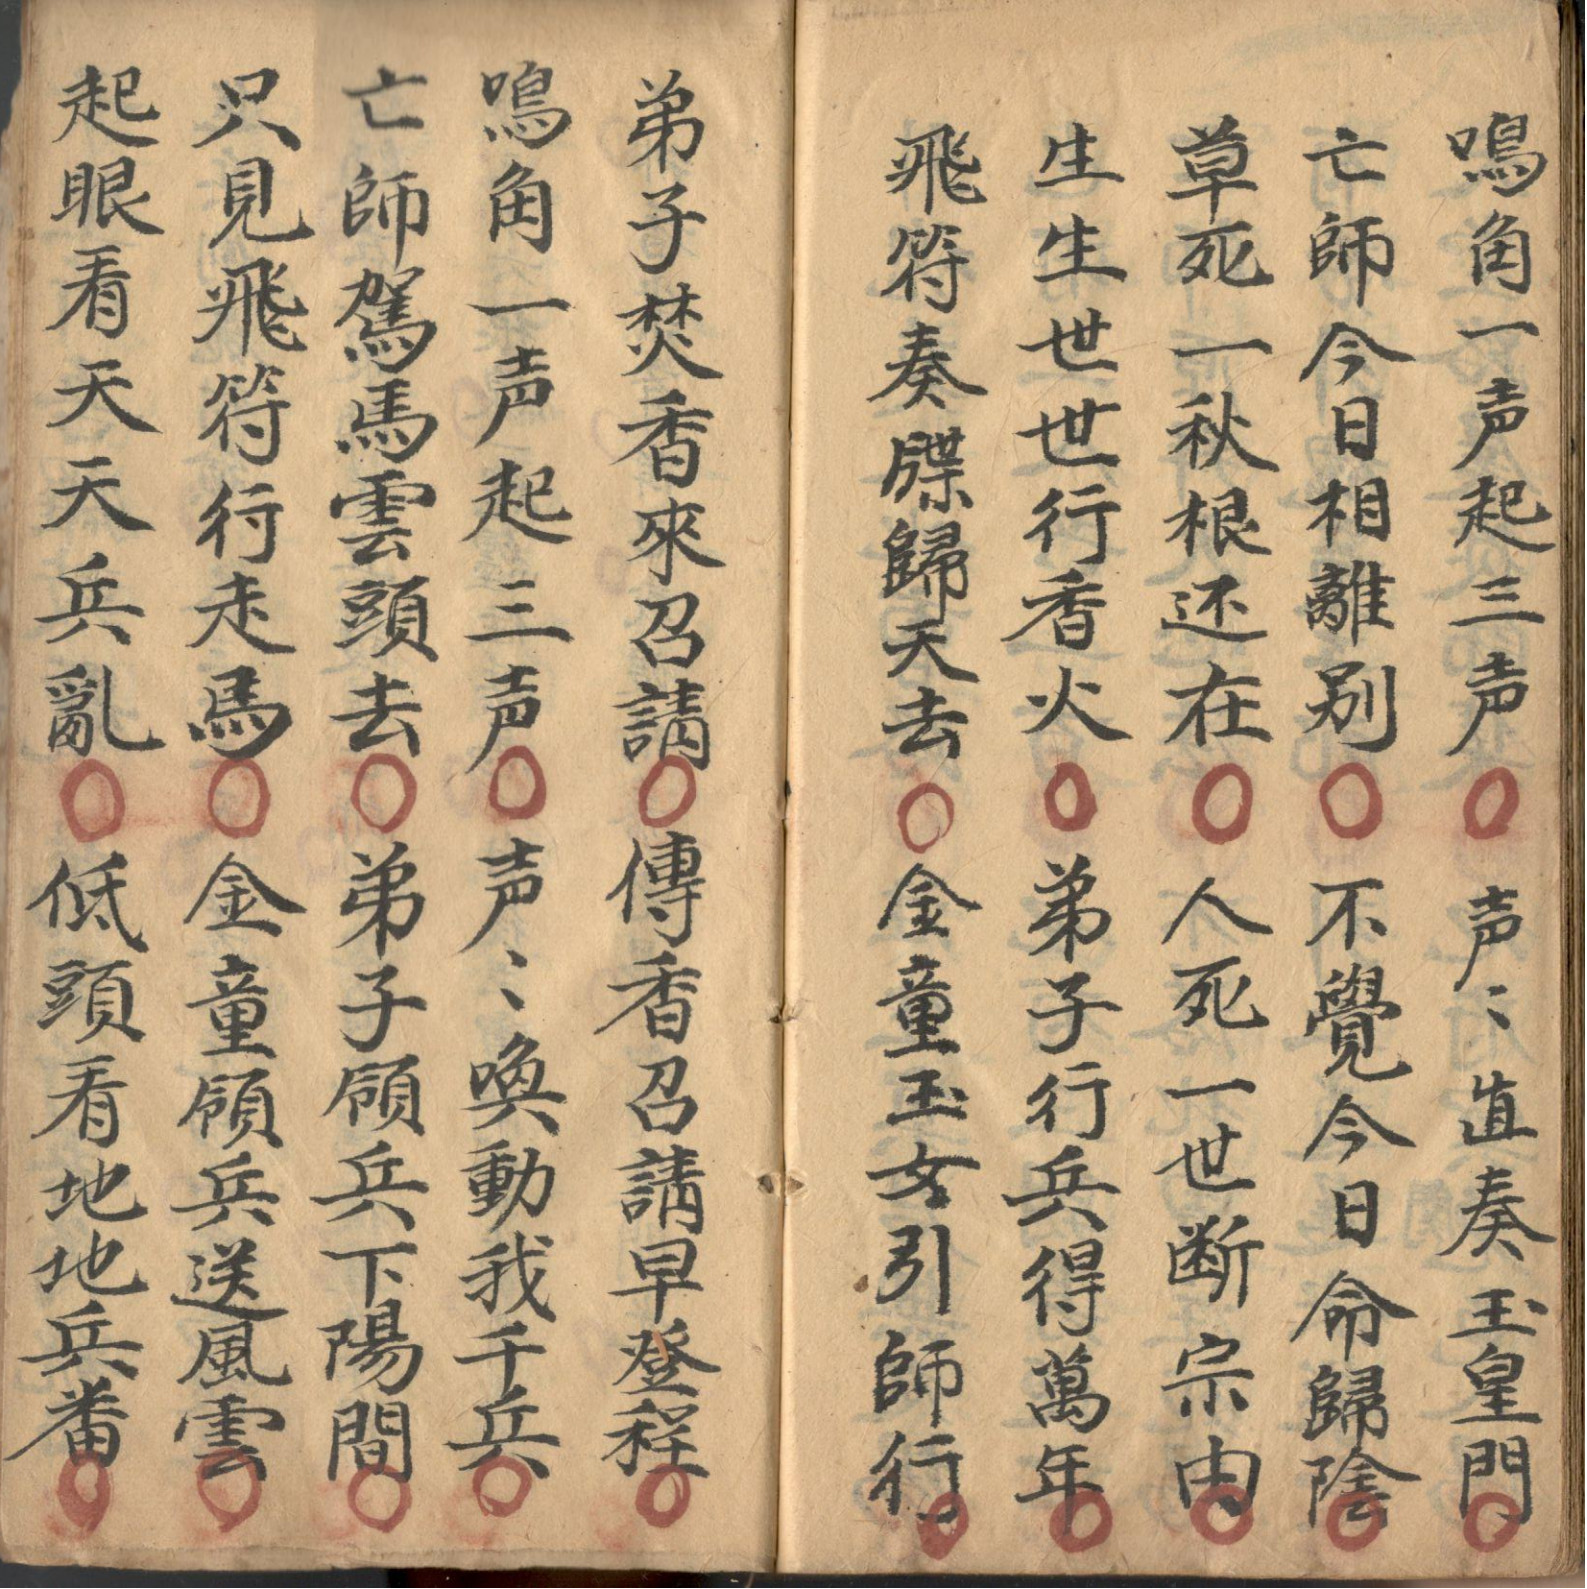 鳴角一声起三声○声〻直奏玉皇門○
亡師今日相離别○不覺今日命歸陰○
草死一秋根还在○人死一世断宗由○
生生世世行香火○弟子行兵得萬年○
飛符奏牒歸天去○金童玉女引師行○
弟子焚香來召請○傳香召請早登程○
鳴角一声起三声○声〻喚動我千兵○
亡師駕馬雲頭去○弟子領兵下陽間○
只見飛符行走馬○金童領兵送風雲○
起眼看天天兵亂○低頭看地地兵番○